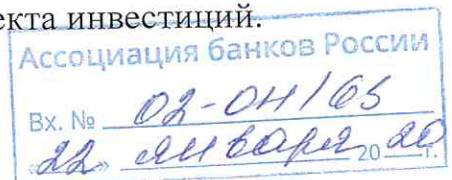 екта инвестиций.
Ассоциация банков России
Вх. № 02-ОН/65
«22» января 2020 г.